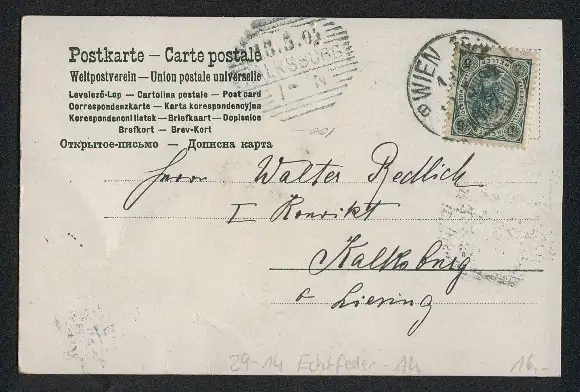 Postkarte — Carte postale
Weltpostverein — Union postale universelle
Levelező-Lap — Cartolina postale — Post card
Correspondenzkarte — Karta korespondencyjna
Korespondencni listek — Briefkaart — Dopisnice
Brefkort — Brev-Kort
Открытое-письмо — Дописна карта
WIEN
Herrn Walter Redlich
I Konvikt
Kalksburg
a Liesing
29-14 Echtfeder - Ak
16,-